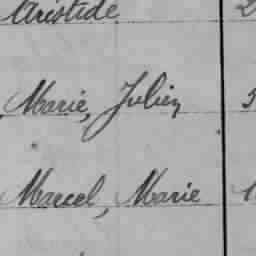 Aristide
Marie, Julien
Marcel, Marie